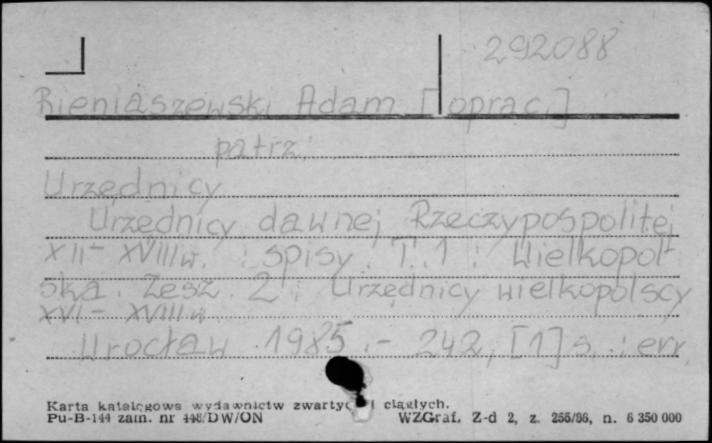 292088
Bieniaszewski Adam [oprac.]
patrz:
Urzędnicy
Urzędnicy dawnej Rzeczypospolitej
XII - XVIII w. : spisy. T. 1 : Wielkopol-
ska. Zesz. 2 : Urzędnicy wielkopolscy
XVI - XVIII w.
Wrocław 1985. - 242, [1] s. : err.
Karta katalogowa wydawnictw zwartych i ciągłych.
Pu-B-144 zam. nr 448/DW/ON WZGraf. Z-d 2, z. 266/86, n. 6 350 000